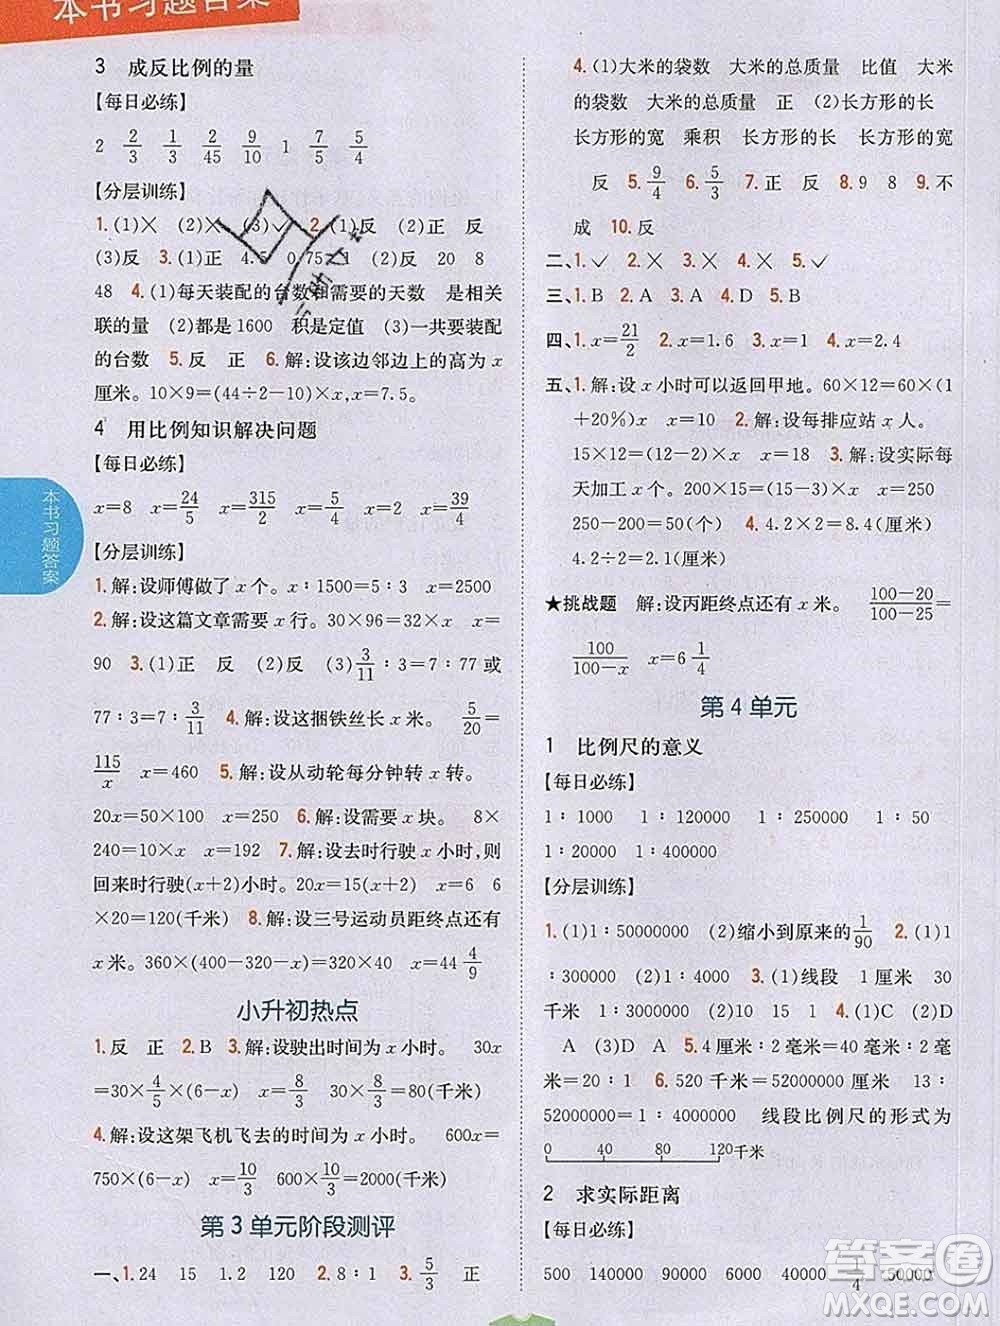 本书习题答案
3 成反比例的量
【每日必练】
2 2/3 1/3 2/45 9/10 1 7/5 5/4
【分层训练】
1.(1)× (2)× (3)✓ 2.(1)反 (2)正
(3)反 3.(1)正 4.5 0.75 1 (2)反 20 8
48 4.(1)每天装配的台数和需要的天数 是相关
联的量 (2)都是 1600 积是定值 (3)一共要装配
的台数 5.反 正 6.解:设该边邻边上的高为 x
厘米。10×9=(44÷2-10)×x,x=7.5。
4 用比例知识解决问题
【每日必练】
x=8 x=24/5 x=315/2 x=5/4 x=2 x=39/4
【分层训练】
1.解:设师傅做了 x 个。x:1500=5:3 x=2500
2.解:设这篇文章需要 x 行。30×96=32×x x=
90 3.(1)正 反 (2)反 (3)3/11:3=7:77 或
77:3=7:3/11 4.解:设这捆铁丝长 x 米。 5/20=
115/x x=460 5.解:设从动轮每分钟转 x 转。
20x=50×100 x=250 6.解:设需要 x 块。 8×
240=10×x x=192 7.解:设去时行驶 x 小时,则
回来时行驶(x+2)小时。20x=15(x+2) x=6 6
×20=120(千米) 8.解:设三号运动员距终点还有
x 米。360×(400-320)=320×40 x=44 4/9
小升初热点
1.反 正 2.B 3.解:设驶出时间为 x 小时。 30x
=30×4/5×(6-x) x=8/3 30×8/3=80(千米)
4.解:设这架飞机飞去的时间为 x 小时。 600x=
750×(6-x) x=10/3 600×10/3=2000(千米)
第 3 单元阶段测评
一、1.24 15 1.2 30 2.8:1 3.5/3 正
4.(1)大米的袋数 大米的总质量 比值 大米
的袋数 大米的总质量 正 (2)长方形的长
长方形的宽 乘积 长方形的长 长方形的宽
反 5.9/4 6.5/3 7.正 反 8.9 8 9.不
成 10.反
二、1.✓ 2.× 3.× 4.× 5.✓
三、1.B 2.A 3.A 4.A 5.B
四、1.x=21/2 2.x=1.6 3.x=1 4.x=2.4
五、1.解:设 x 小时可以返回甲地。60×12=60×(1
+20%)x x=10 2.解:设每排应站 x 人。
15×12=10×x x=18 3.解:设实际每
天加工 x 个。200×15=(15-3)×x x=250
250-200=50(个) 4.4.2×2=8.4(厘米)
4.2÷2=2.1(厘米)
★挑战题 解:设丙距终点还有 x 米。 100-20/100-25=
100/100-x x=6 1/4
第 4 单元
1 比例尺的意义
【每日必练】
1:1000 1:400000 1:2500000 1:50
1:20000 1:120000
【分层训练】
1.(1)1:50000000 (2)缩小到原来的1/90 2.(1)1
:300000 (2)1:4000 3.(1)线段 1厘米 30
千米 1:3000000 (2)10 15 1 4.(1)C (2)D
A (3)D A 5.4 厘米:2 毫米=40 毫米:2 毫米
=20:1 6.520 千米=52000000 厘米 13:
52000000=1:4000000 线段比例尺的形式为
0 40 80 120千米
2 求实际距离
【每日必练】
500 140000 90000 720000 40000 1/4 50000
本书习题答案
答案圈
MXQE.COM